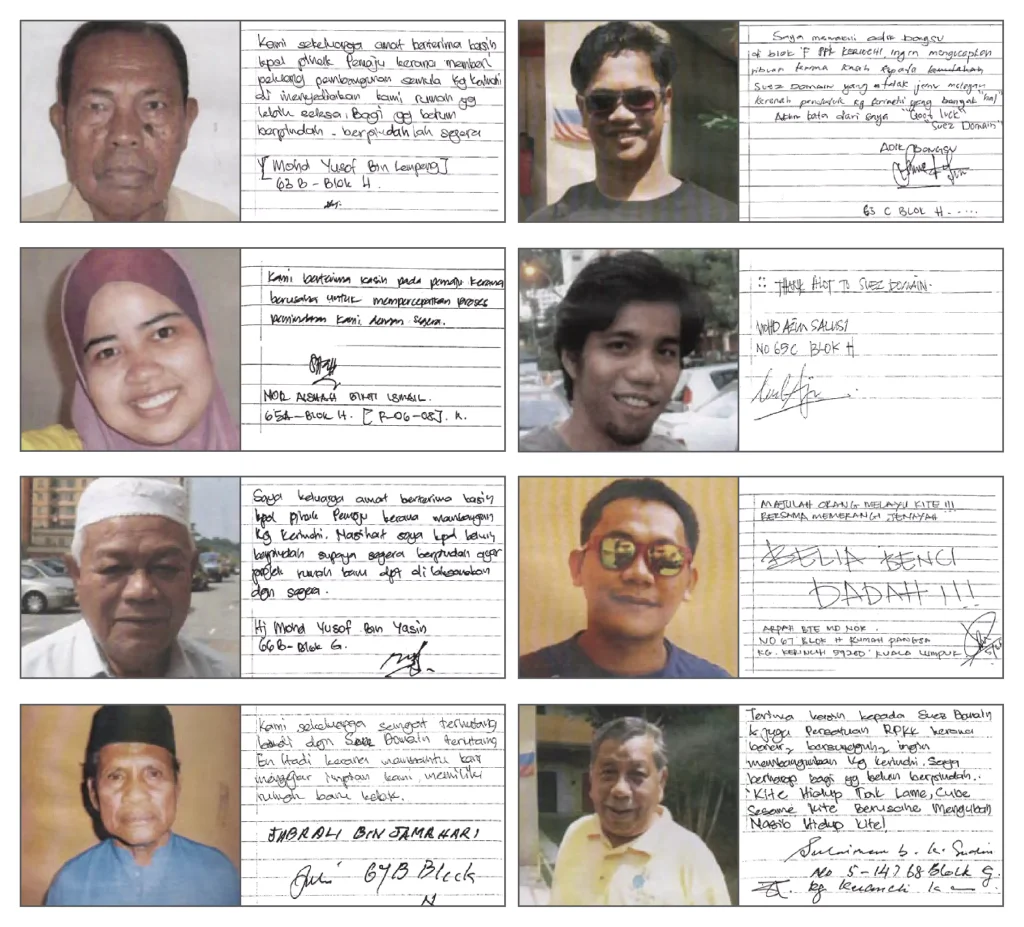 Kami sekeluarga amat berterima kasih
kpd pihak Pemaju kerana memberi
peluang pembangunan semula Kg Kerinchi
di menyediakan kami rumah yg
lebih selesa. Bagi yg belum
berpindah - berpindahlah segera
[Mohd Yusof Bin Lempang]
63 B - Blok H.
Saya mewakili adik bongsu
di blok "F" PPR KERINCHI ingin mengucapkan
ribuan terima kasih kepada
Suez Domain yang
kg kerinchi yang banyak
Akhir kata dari saya "Good luck"
"Suez Domain"
ADIK BONGSU
63 C BLOK H
Kami berterima kasih pada pemaju kerana
berusaha untuk mempercepatkan proses
pemindahan kami dengan segera.
NOR AISHAH BINTI ISMAIL.
65A - BLOK H. [R-06-08]. K.
:: THANK ALOT TO SUEZ DOMAIN.
MOHD AZIM SALUSI
NO 65C BLOK H
Saya keluarga amat berterima kasih
kpd pihak Pemaju kerana membangun
Kg Kerinchi. Nasihat saya kpd belum
berpindah supaya segera berpindah agar
projek rumah baru dpt di laksanakan
dgn segera.
Hj Mohd Yusof Bin Yasin
66B - Blok G.
MAJULAH ORANG MELAYU KITE !!!
BERSAMA MEMERANGI JENAYAH
BELIA BENCI
DADAH !!!
ARPAH BTE MD NOR.
NO 67 BLOK H RUMAH PANGSA
KG. KERINCHI 59200 KUALA LUMPUR
Kami sekeluarga sangat terhutang
budi dgn Suez Domain terutang
En Hadi kerana membantu kami
mengejar impian kami memiliki
rumah baru kelak.
JABRALI BIN JAMAHARI
67B Block
H
Terima kasih kepada Suez Domain
& juga Persatuan RPKK kerana
benar2 bersungguh2 ingin
membangunkan Kg Kerinchi. Saya
berharap bagi yg belum berpindah.
"Kite Hidup Tak Lame, Cube
Sesame Kite Berusahe Mengubah
Nasib Hidup Kite!
Sulaiman b.
No 5-14768 Block G.
Kg Kerinchi